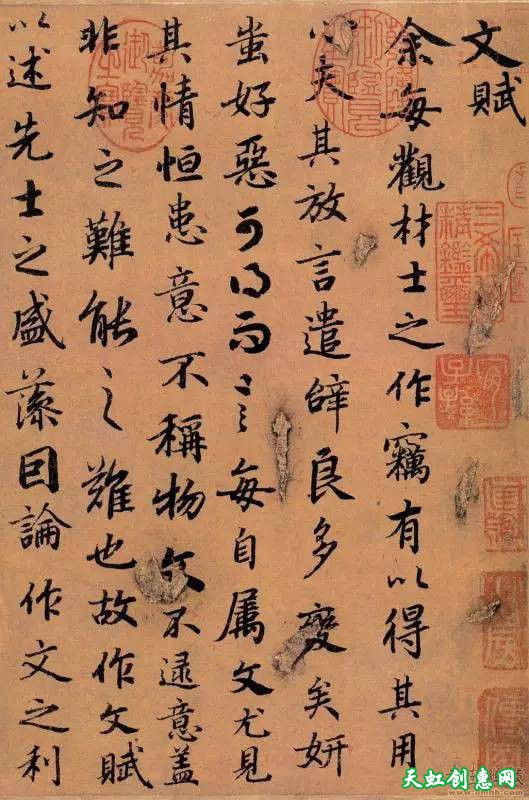 文賦
余每觀材士之作竊有以得其用
心夫其放言遣辭良多變矣妍
蚩好惡可得而言每自属文尤見
其情恒患意不稱物文不逮意盖
非知之難能之難也故作文賦
以述先士之盛藻因論作文之利
三希堂
精鑑璽
宜子孫
天虹创意网